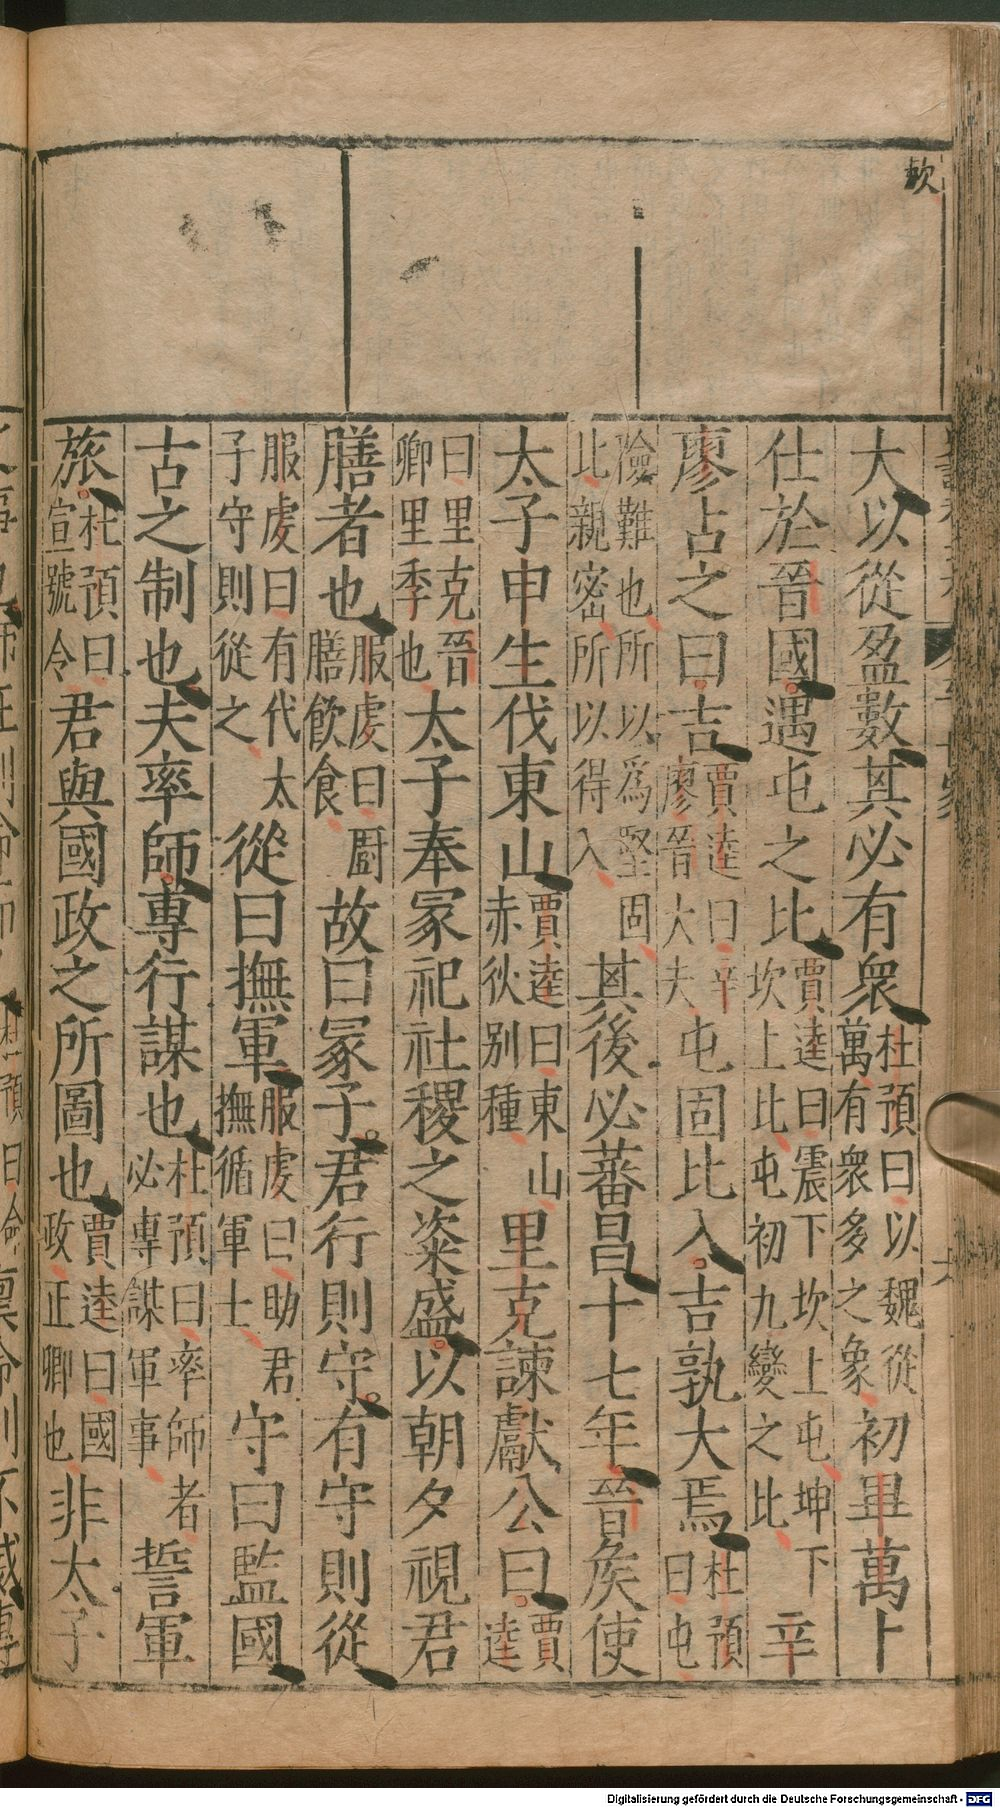 欶
大以從盈數其必有衆杜預曰以魏從萬有衆多之象初畢萬卜
仕於晉國遇屯之比賈逵曰震下坎上屯坤下坎上比屯初九變之比辛
廖占之曰吉賈逵曰辛廖晉大夫屯固比入吉孰大焉杜預曰屯
險難也所以爲堅固比親密所以得入其後必蕃昌十七年晉矦使
太子申生伐東山賈逵曰東山赤狄别種里克諫獻公曰賈逵
曰里克晉卿里季也太子奉冢祀社稷之粢盛以朝夕視君
膳者也服虔曰厨膳飲食故曰冢子君行則守有守則從
服虔曰有代太子守則從之從曰撫軍服虔曰助君撫循軍士守曰監國
古之制也夫率師專行謀也杜預曰率師者必專謀軍事誓軍
旅杜預曰宣號令君與國政之所圖也賈逵曰國政正卿也非太子
Digitalisierung gefördert durch die Deutsche Forschungsgemeinschaft - DFG